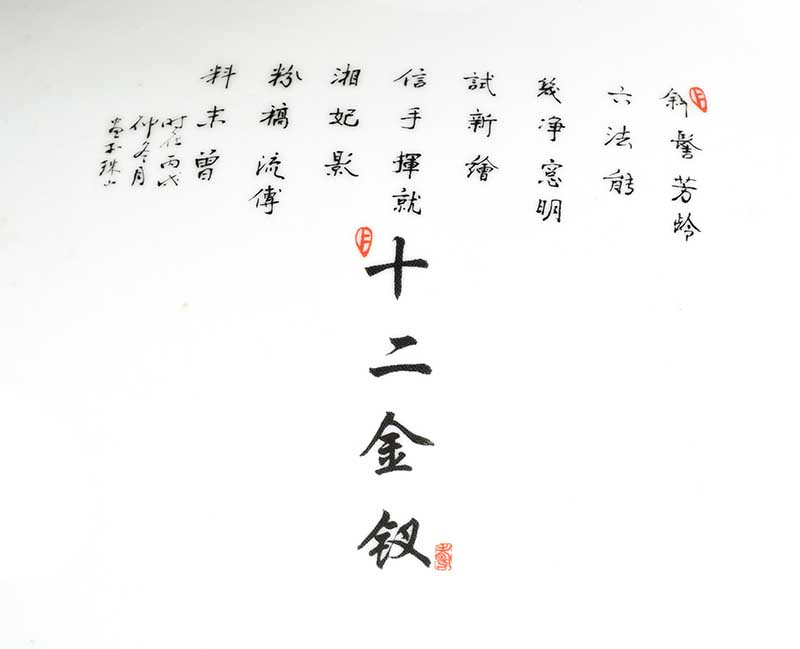 斜髻芳龄
六法能
幾净窓明
試新繪
信手揮就
湘妃影
粉稿流傳
料未曾
时在丙戌
仲冬月
畫于珠山
十二金钗